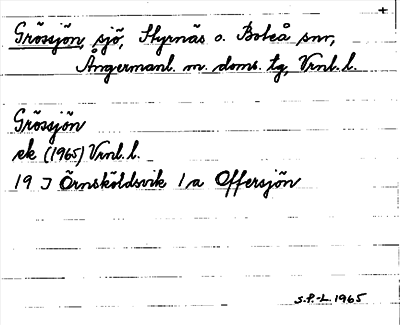 +
Grössjön, sjö, Styrnäs o. Boteå snr,
Ångermanl. m. doms. tg, Vrnl. l.
Grössjön
ek (1965) Vrnl. l.
19 J Örnsköldsvik 1 a Offersjön
S.P.-L. 1965